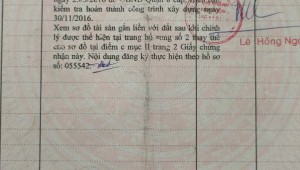 kiểm tra hoàn thành công trình xây dựng ngày
30/11/2016.
Xem sơ đồ tài sản gắn liền với đất sau khi chỉnh
lý được thể hiện tại trang bổ sung số 2 thay thế
cho sơ đồ tại điểm c mục II trang 2 Giấy chứng
nhận này. Nội dung đăng ký thực hiện theo hồ sơ
số: 055542
Lê Hồng Ngọ